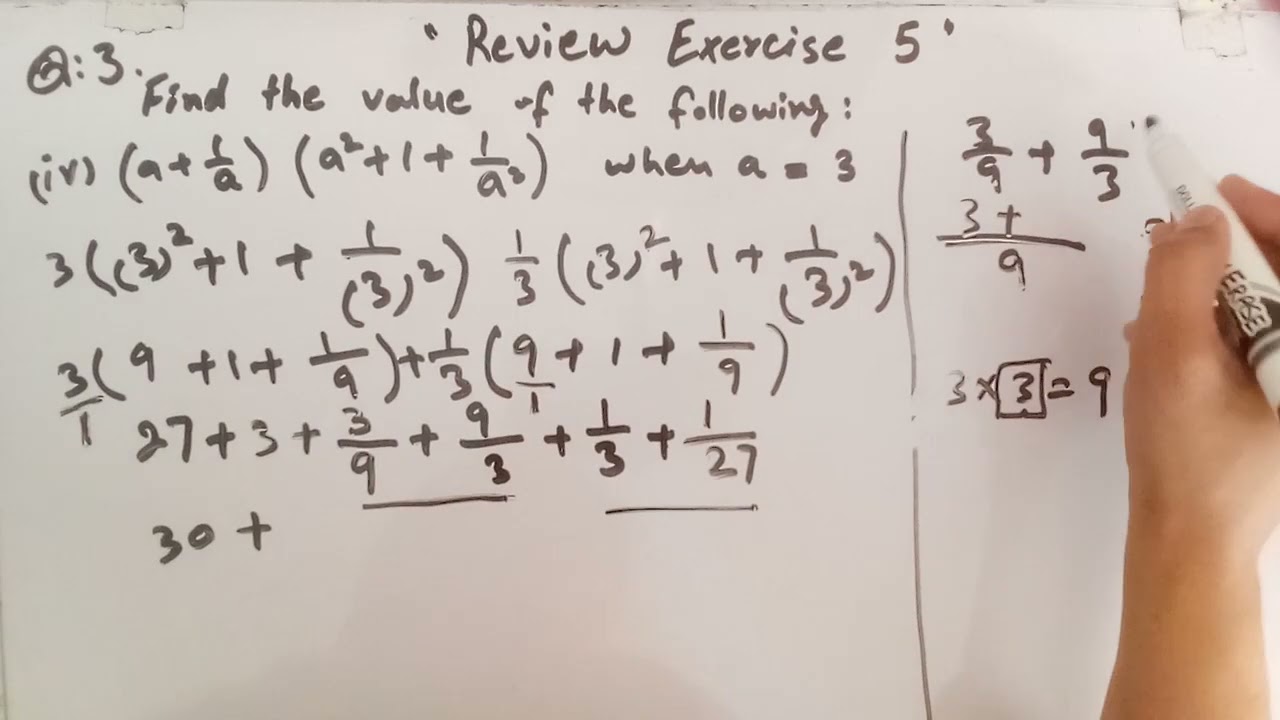 " Review Exercise 5 "
Q:3. Find the value of the following:
(iv) (a + 1/a) (a² + 1 + 1/a²) when a = 3
3((3)² + 1 + 1/(3)²) 1/3 ((3)² + 1 + 1/(3)²)
3/1 (9 + 1 + 1/9) + 1/3 (9/1 + 1 + 1/9)
27 + 3 + 3/9 + 9/3 + 1/3 + 1/27
30 +
3/9 + 9/3
3 +
9
3 × 3 = 9
ERASE